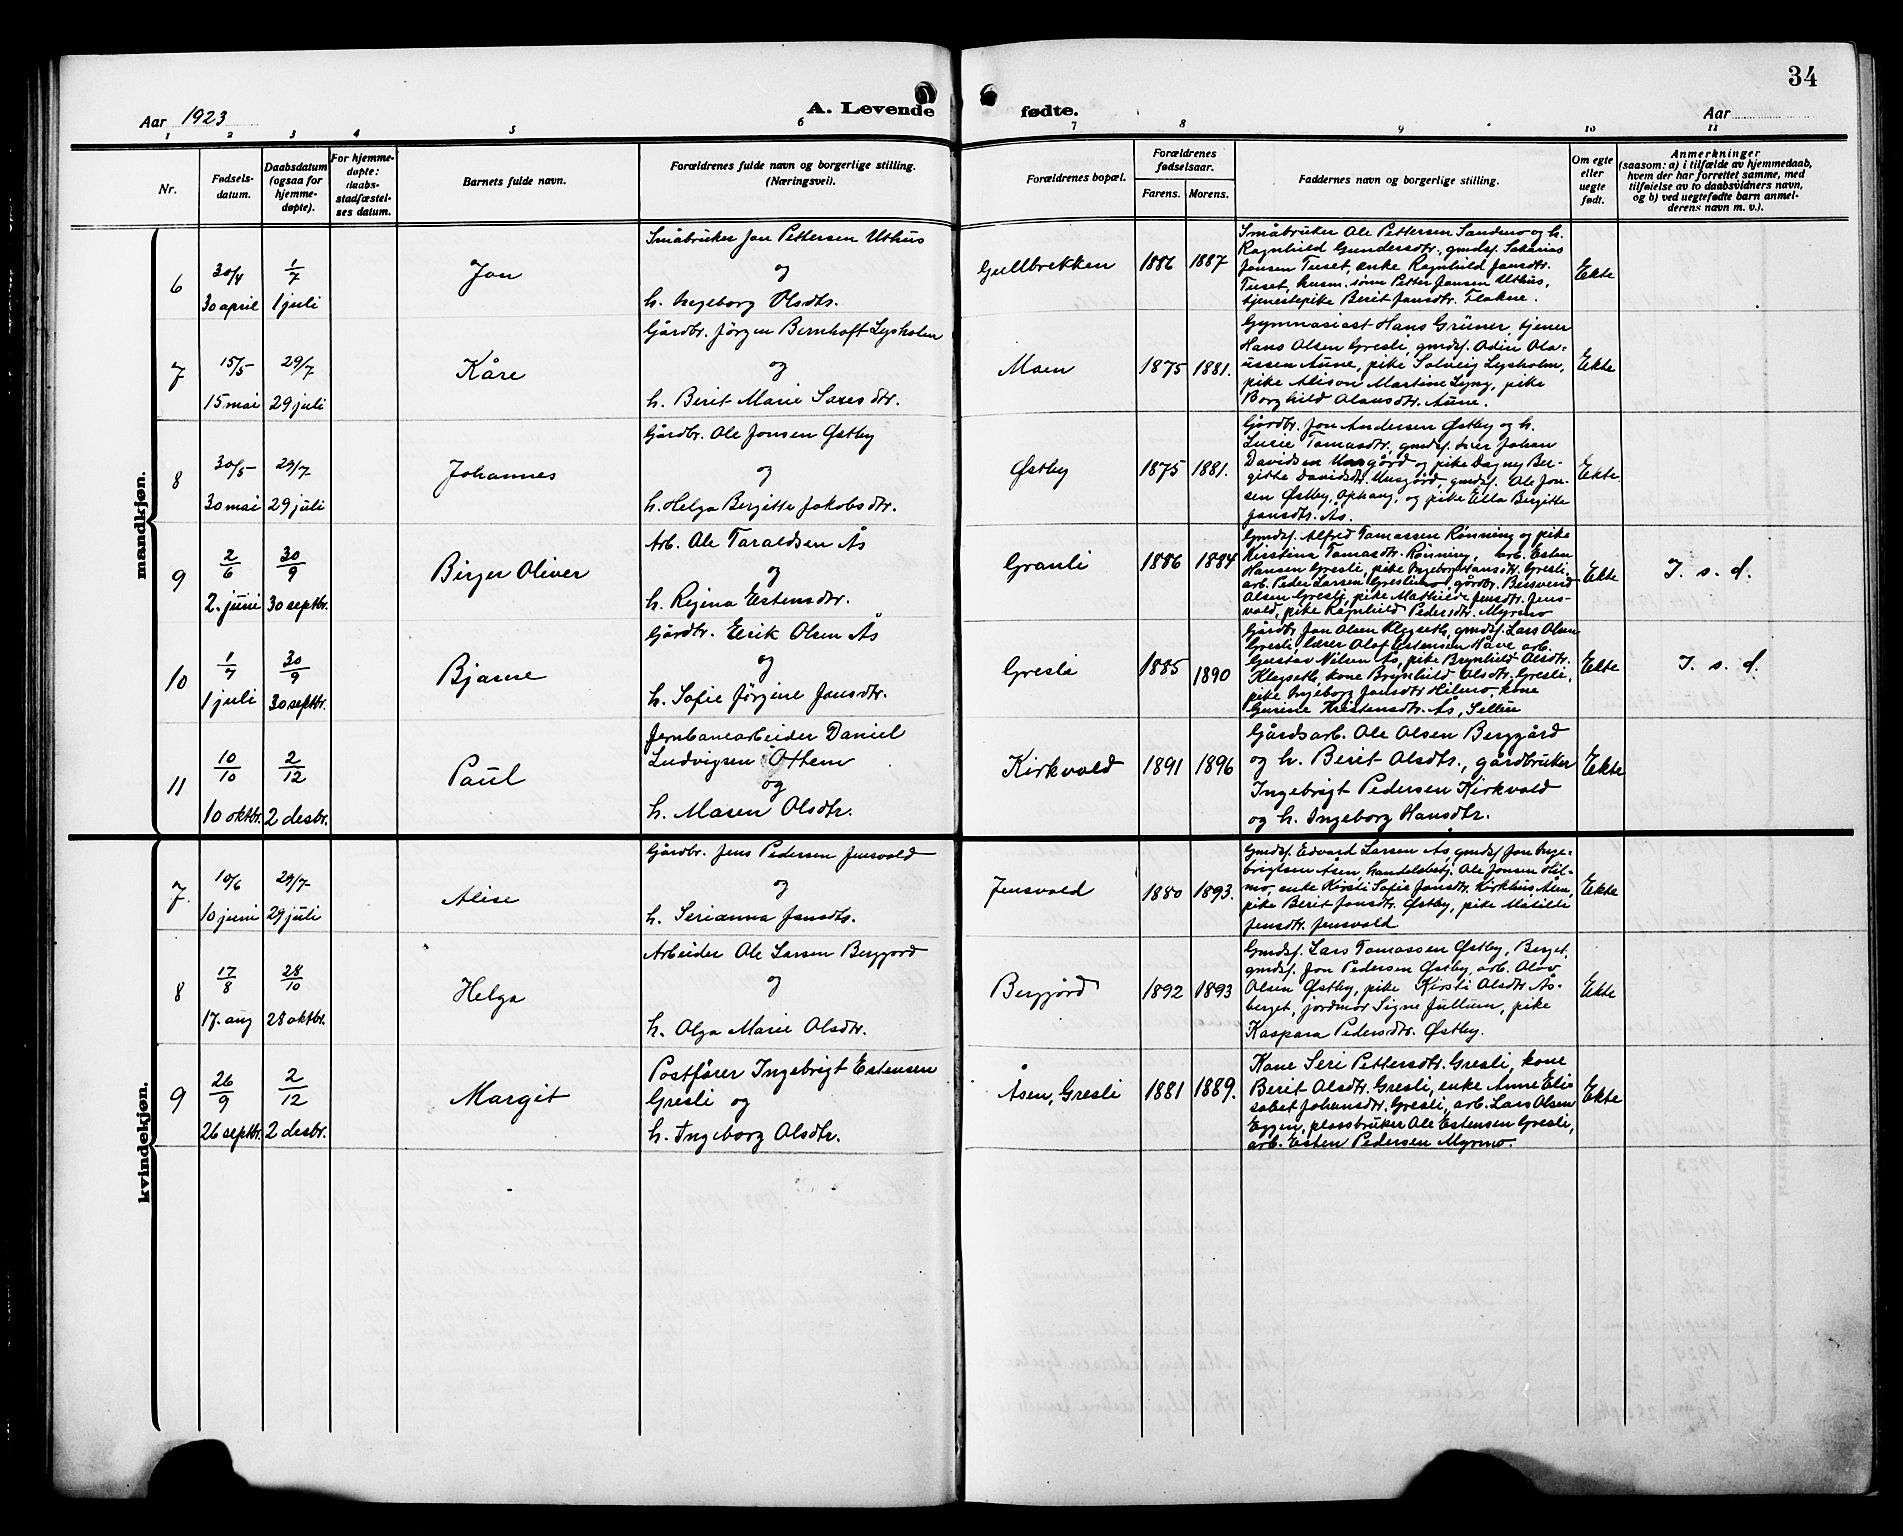 34
Aar 1923
A. Levende
fødte.
Aar
1 2 3 4 5 6
7 8 9 10 11
Nr.
Fødsels-
datum.
Daabsdatum
(ogsaa for
hjemme-
døpte).
For hjemme-
døpte:
daabs-
stadfæstel-
ses datum.
Barnets fulde navn.
Forældrenes fulde navn og borgerlige stilling.
(Næringsvei).
Forældrenes bopæl.
Forældrenes
fødselsaar.
Farens. Morens.
Faddernes navn og borgerlige stilling.
Om egte
eller
uegte
født.
Anmerkninger
(saasom: a) i tilfælde av hjemmedaab,
hvem der har forrettet samme, med
tilføielse av to daabsvidners navn,
og b) ved uegtefødte barn anmel-
derens navn m. v.).
mandkjøn.
6
30/4
30 april
1/7
1 juli
Jon
Småbruker Jon Pettersen Uthus
og
h. Ingeborg Olsdtr.
Gullbrekken
1886
1887
Småbruker Ole Pettersen Sandmo og h.
Ragnhild Gundersdtr. gmdsf. Sakarias
Jonsen Tuset, enke Ragnhild Jonsdtr.
Tuset, husm. sønn Petter Jonsen Uthus,
tjenestepike Berit Jonsdtr. Flakne.
Ekte
7
15/5
15 mai
29/7
29 juli
Kåre
Gårdbr. Jørgen Bernhoft Lysholm
og
h. Berit Marie Larsdtr.
Moen
1875
1881.
Gymnasiast Hans Grüner, tjener
Hans Olsen Gresli, gmdsf. Odin Ola-
ussen Aune, pike Solveig Lysholm,
pike Alison Martine Lyng, pike
Borghild Olausdtr. Aune.
Ekte
8
30/5
30 mai
29/7
29 juli
Johannes
Gårdbr. Ole Jonsen Østby
og
h. Helga Bergitte Jakobsdtr.
Østby
1875
1881.
Gårdbr. Jon Andersen Østby og h.
Lucie Tomasdtr., gmdsf. Iver Johan
Davidsen Unsgård og pike Dagny Ber-
gitte Davidsdtr. Unsgård, gmdsf. Ole Jon-
sen Østby, Ophaug, og pike Ella Bergitte
Jonsdtr. Ås.
Ekte
9
2/6
2. juni
30/9
30 septbr.
Birger Oliver
Arb. Ole Taraldsen Ås
og
h. Regina Estensdtr.
Granli
1886
1884
Gmdsf. Alfred Tomassen Rønning og pike
Kirstina Tomasdtr. Rønning, arb. Esten
Hansen Gresli, pike Ingeborg Hansdtr. Gresli,
arb. Peder Larsen Greslimo, gårdbr. Bersvend
Olsen Gresli, pike Mathilde Jensdtr. Jens-
vold, pike Ragnhild Pedersdtr. Myrmo
Ekte
I. s. d.
10
1/7
1 juli
30/9
30 septbr.
Bjarne
Gårdbr. Eirik Olsen Ås
og
h. Sofie Jørgine Jonsdtr.
Gresli
1885
1890
Gårdbr. Jon Olsen Klegseth, gmdsf. Lars Olsen
Gresli, lærer Olaf Estensen Håve, arb.
Gustav Nilsen Ås, pike Brynhild Olsdtr.
Klegseth, kone Brynhild Olsdtr. Gresli,
pike Ingeborg Jonsdtr. Hilmo, kone
Gurine Kristensdtr. Ås, Selbu
Ekte
I. s. d.
11
10/10
10 oktbr.
2/12
2 desbr.
Paul
Jernbanearbeider Daniel
Ludvigsen Othem
og
h. Maren Olsdtr.
Kirkvold
1891
1896
Gårdsarb. Ole Olsen Berggård
og h. Berit Olsdtr., gårdbruker
Ingebrigt Pedersen Kirkvold
og h. Ingeborg Hansdtr.
Ekte
kvindekjøn.
7.
10/6
10 juni
29/7
29 juli
Alise
Gårdbr. Jens Pedersen Jensvold
og
h. Serianna Jonsdtr.
Jensvold
1880
1893.
Gmdsf. Edvard Larsen Ås, gmdsf. Jon Inge-
brigtsen Åsen, handelsbetj. Ole Jonsen Hil-
mo, enke Kirsti Sofie Jonsdtr. Kirkhus Ålen,
pike Berit Jonsdtr. Østby, pike Matilde
Jensdtr. Jensvold
Ekte
8
17/8
17. aug
28/10
28 oktbr.
Helga
Arbeider Ole Larsen Bergjord
og
h. Olga Marie Olsdtr.
Bergjord
1892
1893
Gmdsf. Lars Tomassen Østby, Berget,
gmdsf. Jon Pedersen Østby, arb. Olov
Olsen Østby, pike Kirsti Olsdtr. Ås-
berget, jordmor Signe Jullum, pike
Kaspara Pedersdtr. Østby.
Ekte
9
26/9
26 septbr.
2/12
2 desbr.
Margit
Postfører Ingebrigt Estensen
Gresli og
h. Ingeborg Olsdtr.
Åsen, Gresli
1881
1889.
Kone Seri Pettersdtr. Gresli, kone
Berit Olsdtr. Gresli, enke Anne Elie
sabet Johansdtr. Gresli, arb. Lars Olsen
Eggen, plassbruker Ole Estensen Gresli,
arb. Esten Pedersen Myrmo.
Ekte